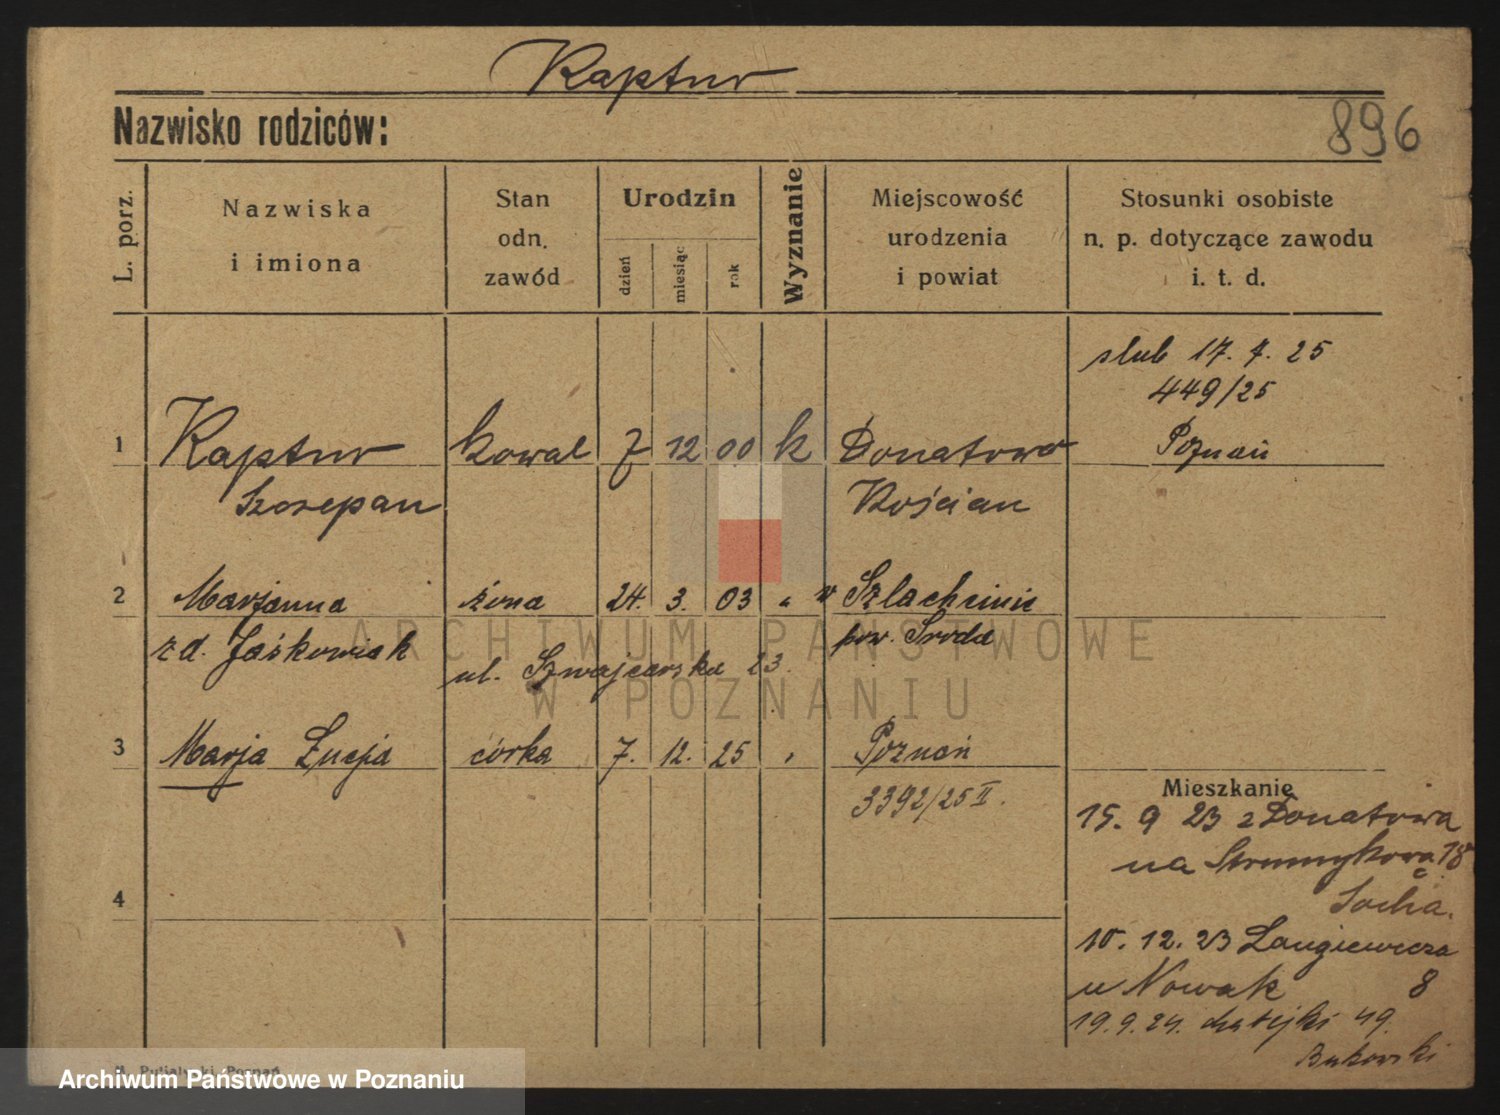 Kaptur
Nazwisko rodziców:
896
L. porz.
Nazwiska
i imiona
Stan
odn.
zawód
Urodzin
dzień
miesiąc
rok
Wyznanie
Miejscowość
urodzenia
i powiat
Stosunki osobiste
n. p. dotyczące zawodu
i. t. d.
slub 17. 4. 25
449/25
Poznań
1 Kaptur kowal 7 12 00 k Donatowo
Szczepan Kościan
2 Marjanna żona 24. 3. 03 „ w Szlachcinie
z d. Jaśkowiak pow. Środa
ul. Szwajcarska 23.
3 Marja Łucja córka 7. 12. 25 „ Poznań
3392/25 II.
Mieszkanie
15. 9 23 z Donatowa
na Strumykową 18
c Socha.
4
10. 12. 23 Langiewicza
u Nowak 8
19. 9. 24. Matejki 49.
Bukowski
ARCHIWUM PAŃSTWOWE
W POZNANIU
Poznań
Archiwum Państwowe w Poznaniu